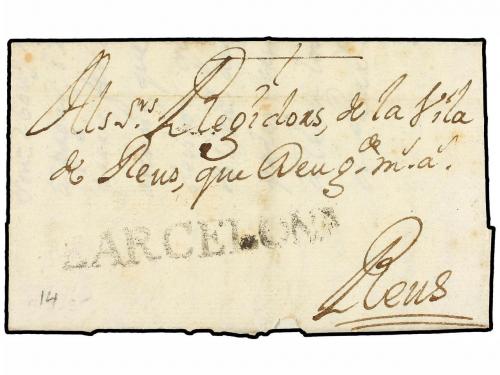 Als S.rs Regidors, de la Vila
de Reus, que Deu g.de m.s a.s
BARCELONA
Reus
14